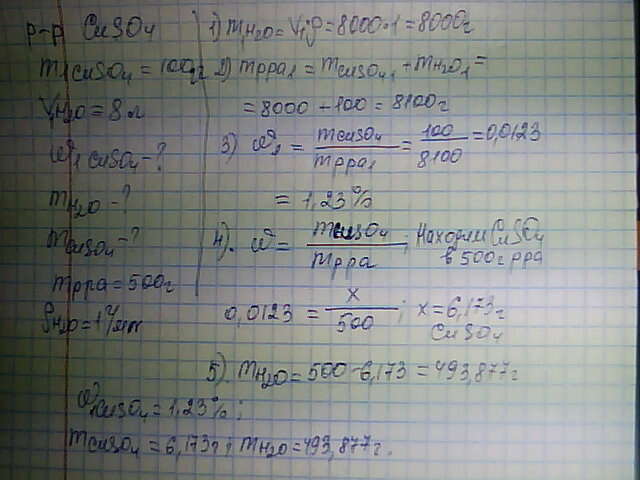 р-р CuSO₄
m₁CuSO₄ = 100г
VH₂O = 8 л
ω₁ CuSO₄ - ?
mH₂O - ?
mCuSO₄ - ?
mрра = 500г
ρH₂O = 1 г/мл
1) mH₂O = V₁·ρ = 8000·1 = 8000г
2) mрра₁ = mCuSO₄₁ + mH₂O₁ =
= 8000 + 100 = 8100г
3) ω₁ = mCuSO₄ / mрра₁ = 100 / 8100 = 0,0123
= 1,23%
4). ω = mCuSO₄ / mрра ; Находим CuSO₄
в 500г рра
0,0123 = x / 500 ; x = 6,173г
CuSO₄
5). mH₂O = 500 - 6,173 = 493,877г
ω₁CuSO₄ = 1,23%;
mCuSO₄ = 6,173г; mH₂O = 493,877г.